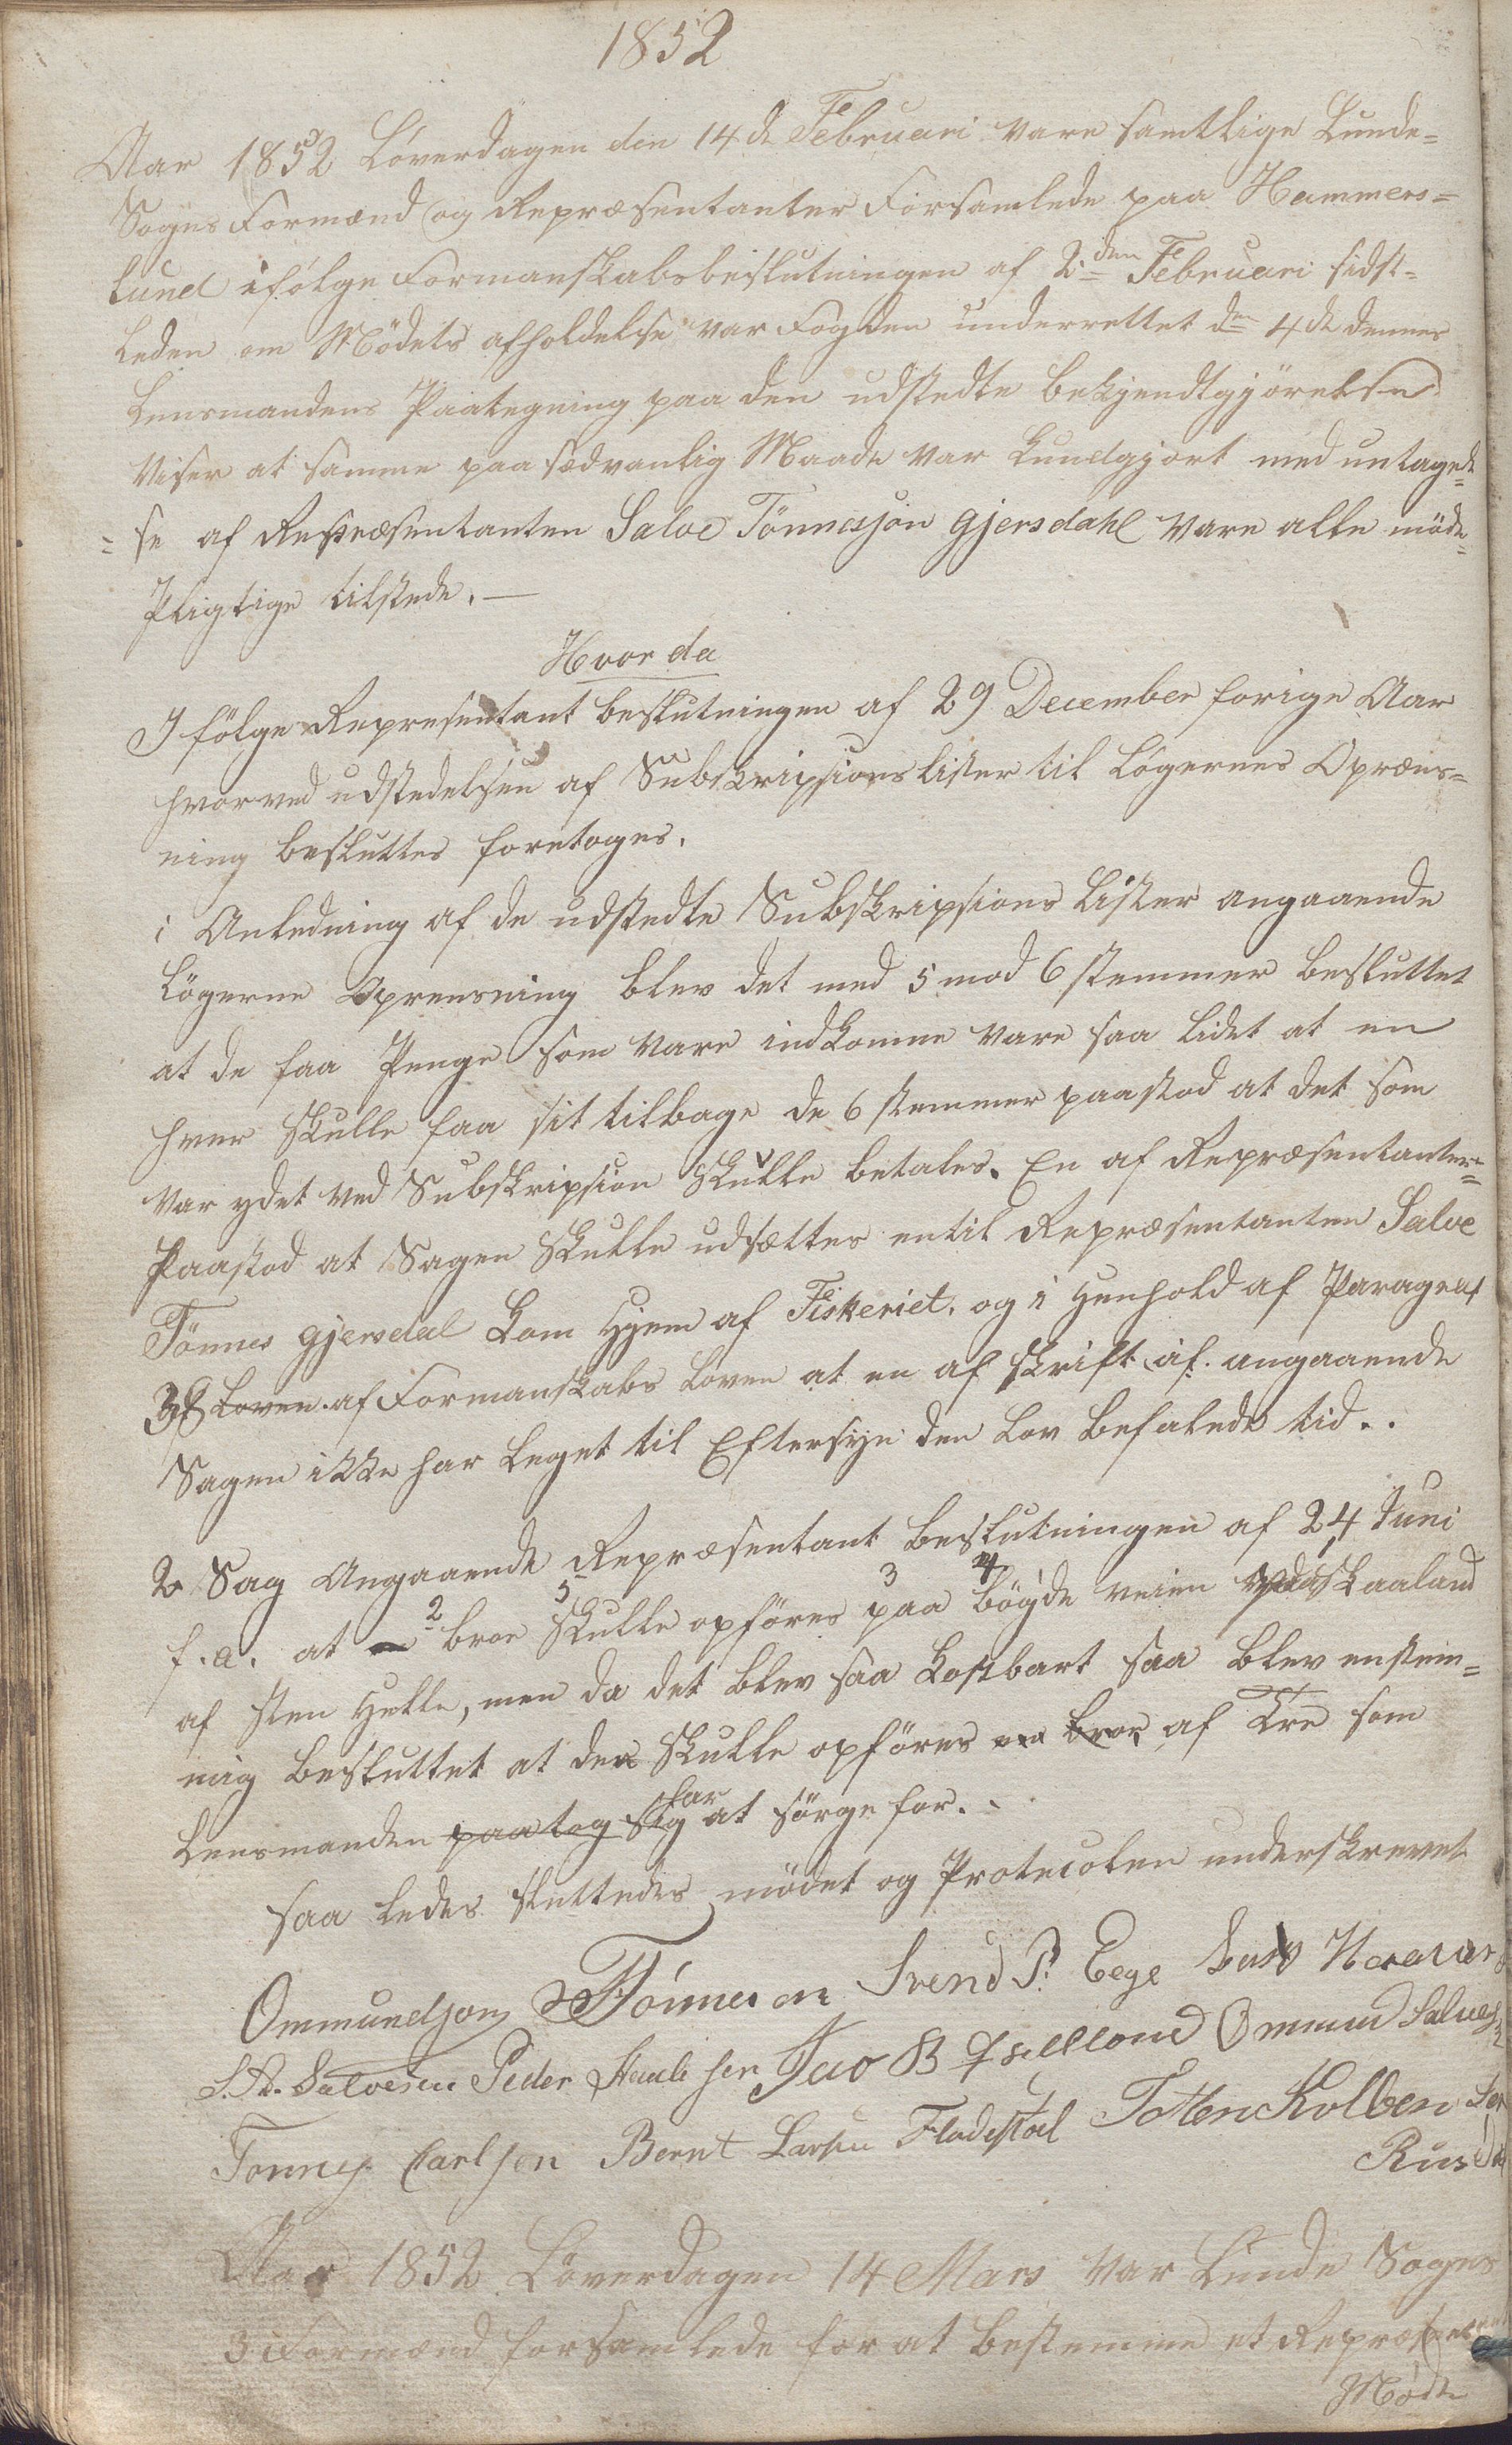 1852
Aar 1852 Löverdagen den 14de Februari vare samtlige Lunde-
Sogns Formænd og Repræsentanter Forsamlede paa Hammers-
lund ifölge Formanskabsbeslutningen af 2den Februari sidst-
leden om Mödets afholdelse var Fogden underrettet den 4de dennes
Lensmandens Paategning paa den udstedte bekjendtgjörelse
viser at samme paa sædvanlig Maade var kundgjort med untagel-
-se af Repræsentanten Salve Tönnesjon Gjersdahl vare alle möde-
Pligtige tilstede. —
Hvor da
I fölge Representant beslutningen af 29 December forige Aar
hvorved udstedelsen af Subskripsions lister til Lögernes Oprens-
ning besluttes foretoges.
i Anledning af de udstedte Subskripsions Lister angaaende
Lögerne Oprensning blev det med 5 mod 6 stemmer besluttet
at de faa Penge som vare indkomne vare saa lidet at en
hver skulle faa sit tilbage de 6 stemmer paastod at det som
var ydet ved Subskripsion skulle betales. En af Repræsentanter-
Paastod at Sagen skulle udsættes entil Repræsentanten Salve
Tönnes Gjersdal kom Hjem af Fiskeriet, og i Henhold af Paragraf
38 Loven af Formanskabs Loven at en af skrift af. angaaende
Sagen ikke har leget til Eftersyn den Lov befalede tid..
2 Sag Angaaende Repræsentant beslutningen af 24 Juni
f. a. at 2 broe 5 skulle opföres 3 paa 4 bögde veien Skaaland
af sten Helle, men da det blev saa kostbart saa blev enstem-
mig besluttet at den skulle opföres en broe af Tre som
Lensmanden paatog sig har at sörge for. -
saa ledes sluttedes mödet og Protecolen underskrevet
Ommundsen Tönneson Svend P. Eege Lars
S. A. Salvesen Peder Jac B Ommund Salves
Tonnes Carlsen Bernt Larsen Fladestöl Totten Kolbensen
Rus
Aar 1852 Löverdagen 14 Mars var Lunde Sogns
3 Formænd forsamlede for at bestemme et Repræsentant
Möde